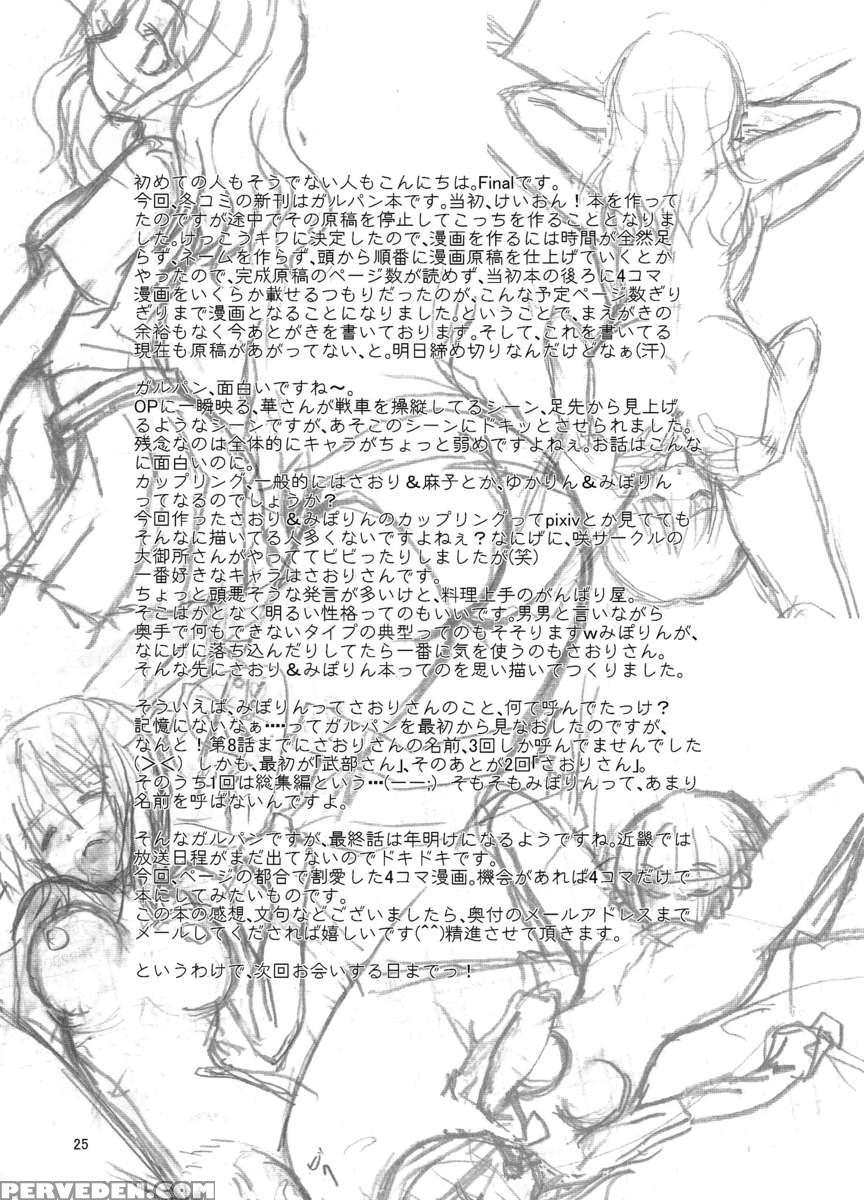 初めての人もそうでない人もこんにちは。Finalです。
今回、冬コミの新刊はガルパン本です。当初、けいおん！本を作って
たのですが途中でその原稿を停止してこっちを作ることとなりま
した。けっこうキワに決定したので、漫画を作るには時間が全然足
らず、ネームを作らず、頭から順番に漫画原稿を仕上げていくとか
やったので、完成原稿のページ数が読めず、当初本の後ろに4コマ
漫画をいくらか載せるつもりだったのが、こんな予定ページ数ぎり
ぎりまで漫画となることになりました。ということで、まえがきの
余裕もなく今あとがきを書いております。そして、これを書いてる
現在も原稿があがってない、と。明日締め切りなんだけどなぁ(汗)
ガルパン、面白いですね～。
OPに一瞬映る、華さんが戦車を操縦してるシーン、足先から見上げ
るようなシーンですが、あそこのシーンにドキッとさせられました。
残念なのは全体的にキャラがちょっと弱めですよねぇ。お話はこんな
に面白いのに。
カップリング、一般的にはさおり＆麻子とか、ゆかりん＆みぽりん
ってなるのでしょうか？
今回作ったさおり＆みぽりんのカップリングってpixivとか見てても
そんなに描いてる人多くないですよねぇ？なにげに、咲サークルの
大御所さんがやっててビビったりしましたが(笑)
一番好きなキャラはさおりさんです。
ちょっと頭悪そうな発言が多いけど、料理上手のがんばり屋。
そこはかとなく明るい性格ってのもいいです。男男と言いながら
奥手で何もできないタイプの典型ってのもそそりますwみぽりんが、
なにげに落ち込んだりしてたら一番に気を使うのもさおりさん。
そんな先にさおり＆みぽりん本ってのを思い描いてつくりました。
そういえば、みぽりんってさおりさんのこと、何て呼んでたっけ？
記憶にないなぁ‥‥ってガルパンを最初から見なおしたのですが、
なんと！第8話までにさおりさんの名前、3回しか呼んでませんでした
(＞＜) しかも、最初が「武部さん」、そのあとが2回「さおりさん」。
そのうち1回は総集編という…(ーー;) そもそもみぽりんって、あまり
名前を呼ばないんですよ。
そんなガルパンですが、最終話は年明けになるようですね。近畿では
放送日程がまだ出てないのでドキドキです。
今回、ページの都合で割愛した4コマ漫画。機会があれば4コマだけで
本にしてみたいものです。
この本の感想、文句などございましたら、奥付のメールアドレスまで
メールしてくだされば嬉しいです(^^)精進させて頂きます。
というわけで、次回お会いする日までっ！
25
PERVEDEN.COM